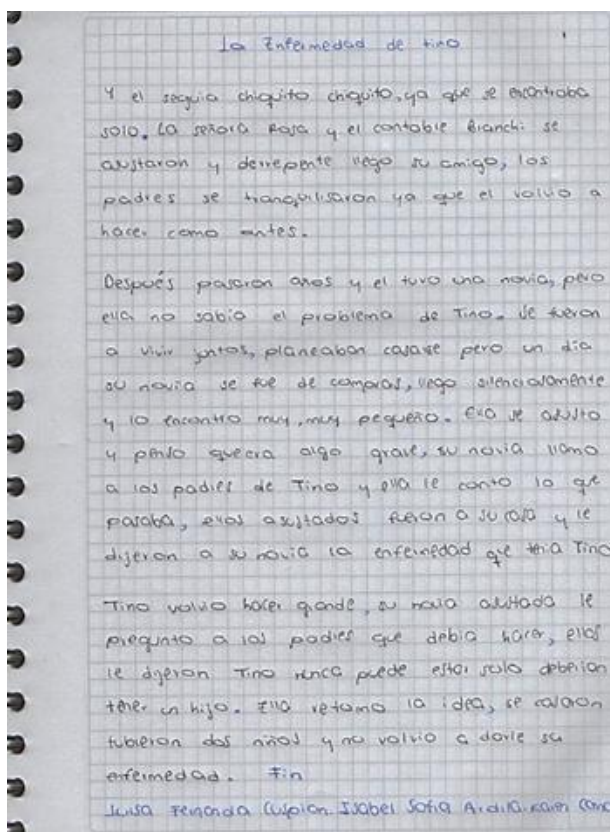 La Enfermedad de tino
Y el seguia chiquito chiquito, ya que se encontraba
solo. La señora Rosa y el contable Bianchi se
asustaron y derrepente llego su amigo, los
padres se tranquilisaron ya que el volvio a
hacer como antes.
Después pasaron años y el tuvo una novia, pero
ella no sabia el problema de Tino. Se fueron
a vivir juntos, planeaban casarse pero un dia
su novia se fue de compras, llego silenciosamente
y lo encontro muy, muy pequeño. Ella se asusto
y penso que era algo grave, su novia llamo
a los padres de Tino y ella le conto lo que
pasaba, ellos asustados fueron a su casa y le
dijeron a su novia la enfermedad que tenia Tino
Tino volvio hacer grande, su novia asustada le
pregunto a los padres que debia hacer, ellos
le dijeron Tino nunca puede estar solo deberian
tener un hijo. Ella retomo la idea, se casaron
tubieron dos niños y no volvio a darle su
enfermedad. Fin
Luisa Fernanda Isabel Sofia Ardila. Karen